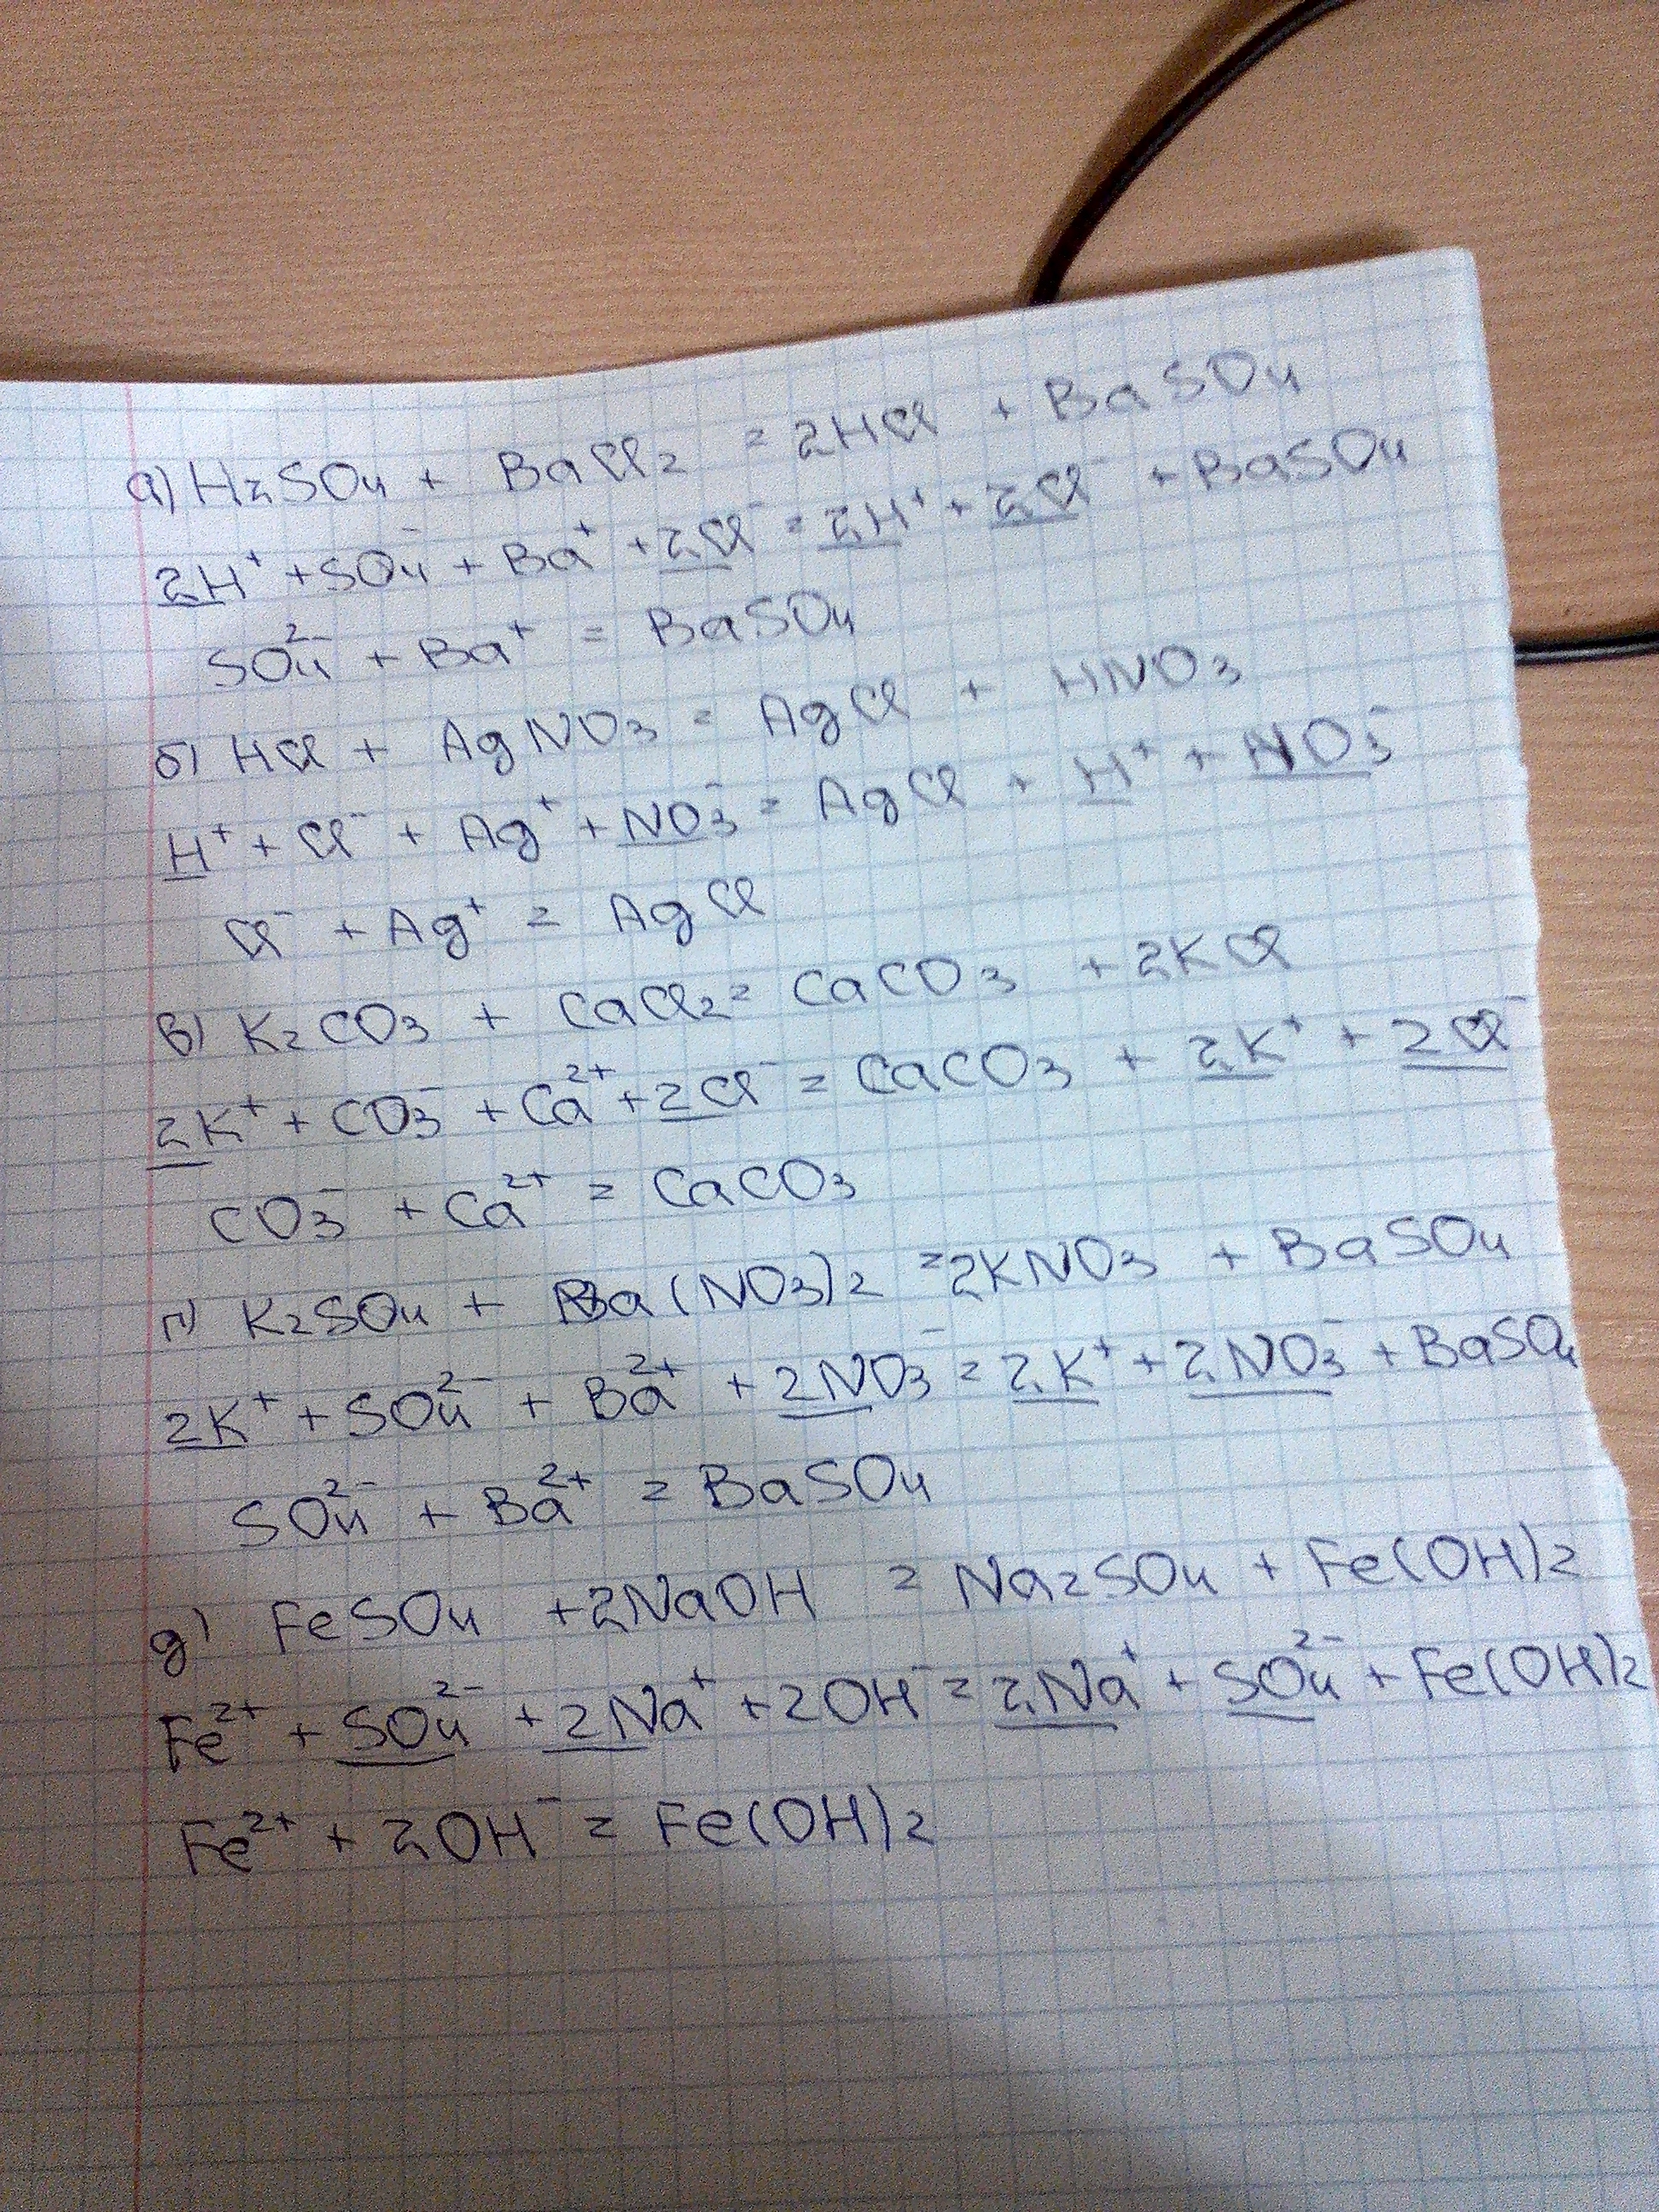 а) H₂SO₄ + BaCl₂ = 2HCl + BaSO₄
2H⁺ + SO₄⁻ + Ba⁺ + 2Cl⁻ = 2H⁺ + 2Cl⁻ + BaSO₄
SO₄²⁻ + Ba⁺ = BaSO₄
б) HCl + AgNO₃ = AgCl + HNO₃
H⁺ + Cl⁻ + Ag⁺ + NO₃⁻ = AgCl + H⁺ + NO₃⁻
Cl⁻ + Ag⁺ = AgCl
в) K₂CO₃ + CaCl₂ = CaCO₃ + 2KCl
2K⁺ + CO₃⁻ + Ca²⁺ + 2Cl⁻ = CaCO₃ + 2K⁺ + 2Cl⁻
CO₃⁻ + Ca²⁺ = CaCO₃
г) K₂SO₄ + Ba(NO₃)₂ = 2KNO₃ + BaSO₄
2K⁺ + SO₄²⁻ + Ba²⁺ + 2NO₃⁻ = 2K⁺ + 2NO₃⁻ + BaSO₄
SO₄²⁻ + Ba²⁺ = BaSO₄
д) FeSO₄ + 2NaOH = Na₂SO₄ + Fe(OH)₂
Fe²⁺ + SO₄²⁻ + 2Na⁺ + 2OH⁻ = 2Na⁺ + SO₄²⁻ + Fe(OH)₂
Fe²⁺ + 2OH⁻ = Fe(OH)₂